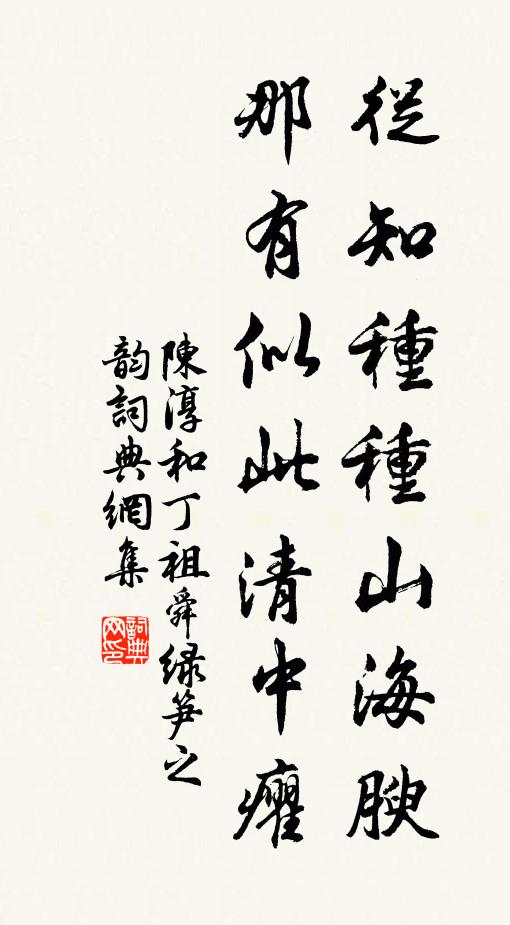 從知種種山海腴
那有似此清中癯
陳淳和丁祖舜緑笋之
韵詞典網集
詞典
网印